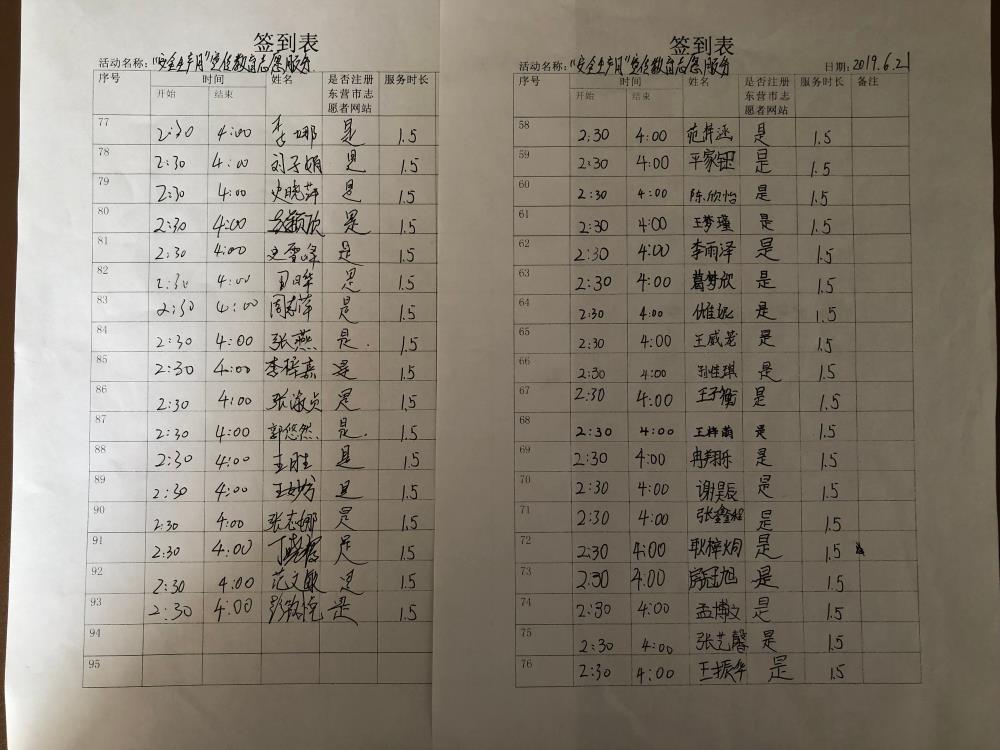 签到表
活动名称：“安全生产月”宣传教育志愿服务
序号 时间 姓名 是否注册东营市志愿者网站 服务时长
开始 结束
77 2:30 4:00 李娜 是 1.5
78 2:30 4:00 刘子娟 是 1.5
79 2:30 4:00 史晓萍 是 1.5
80 2:30 4:00 颖欣 是 1.5
81 2:30 4:00 史雪峰 是 1.5
82 2:30 4:00 是 1.5
83 2:30 4:00 周志萍 是 1.5
84 2:30 4:00 张燕 是. 1.5
85 2:30 4:00 李梓嘉 是 1.5
86 2:30 4:00 张淑贞 是 1.5
87 2:30 4:00 郭悠然 是. 1.5
88 2:30 4:00 是 1.5
89 2:30 4:00 王妙 是 1.5
90 2:30 4:00 张志娜 是 1.5
91 2:30 4:00 丁 是 1.5
92 2:30 4:00 范文敏 是 1.5
93 2:30 4:00 彭 是 1.5
94
95
签到表
活动名称：“安全生产月”宣传教育志愿服务 日期：2019.6.21
序号 时间 姓名 是否注册东营市志愿者网站 服务时长 备注
开始 结束
58 2:30 4:00 范梓涵 是 1.5
59 2:30 4:00 平家钰 是 1.5
60 2:30 4:00 陈欣怡 是 1.5
61 2:30 4:00 王梦瑾 是 1.5
62 2:30 4:00 李雨泽 是 1.5
63 2:30 4:00 葛梦欣 是 1.5
64 2:30 4:00 妮 是 1.5
65 2:30 4:00 王威 是 1.5
66 2:30 4:00 孙佳琪 是 1.5
67 2:30 4:00 王子衡 是 1.5
68 2:30 4:00 王梓萌 是 1.5
69 2:30 4:00 冉翔 是 1.5
70 2:30 4:00 谢昊辰 是 1.5
71 2:30 4:00 张鑫程 是 1.5
72 2:30 4:00 耿梓炯 是 1.5
73 2:30 4:00 旭 是 1.5
74 2:30 4:00 孟博文 是 1.5
75 2:30 4:00 张艺馨 是 1.5
76 2:30 4:00 王振华 是 1.5